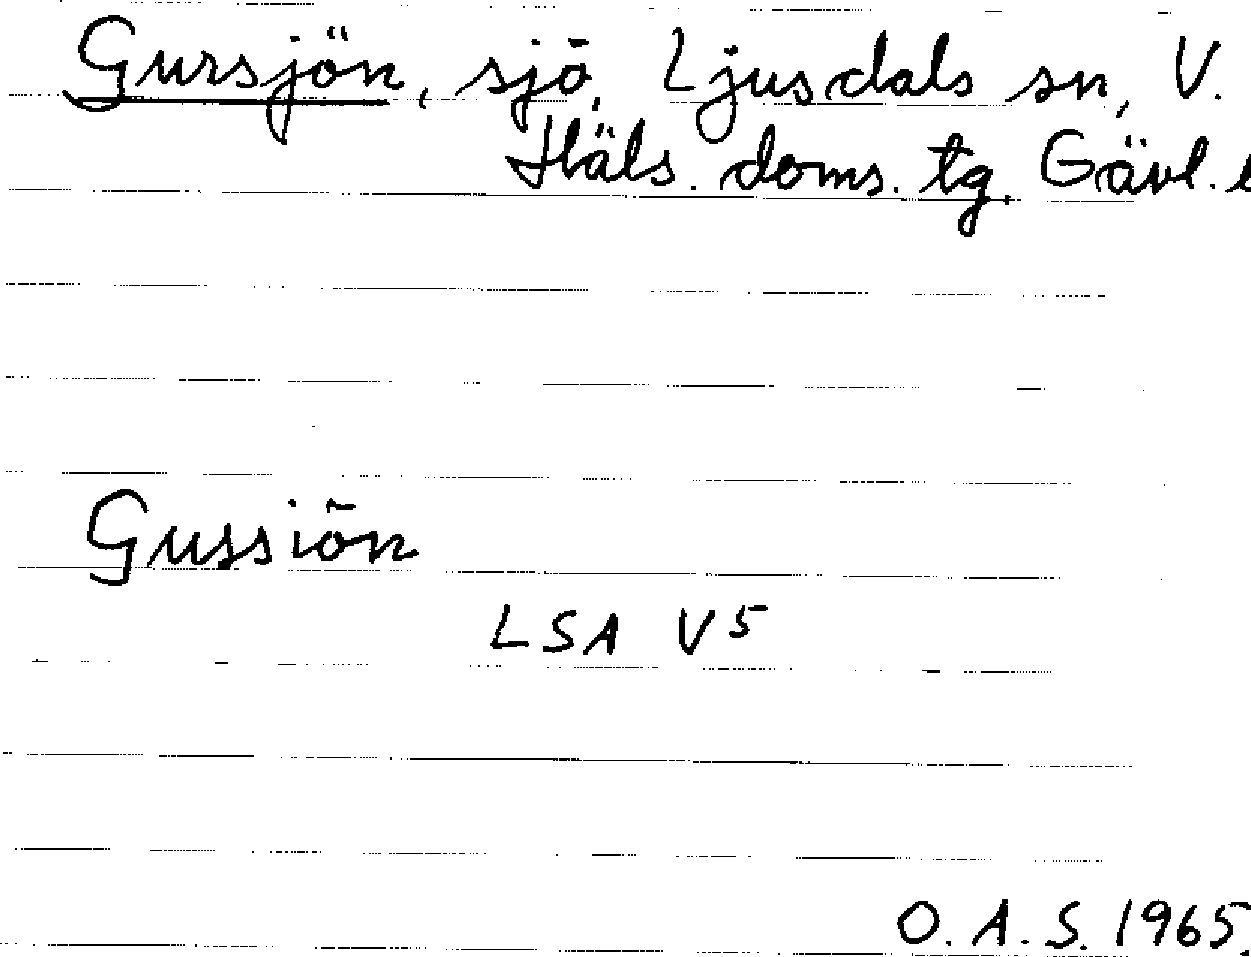 Gursjön, sjö, Ljusdals sn, V.
Häls. doms. tg. Gävl.
Gussiön
LSA V5
O.A.S. 1965.